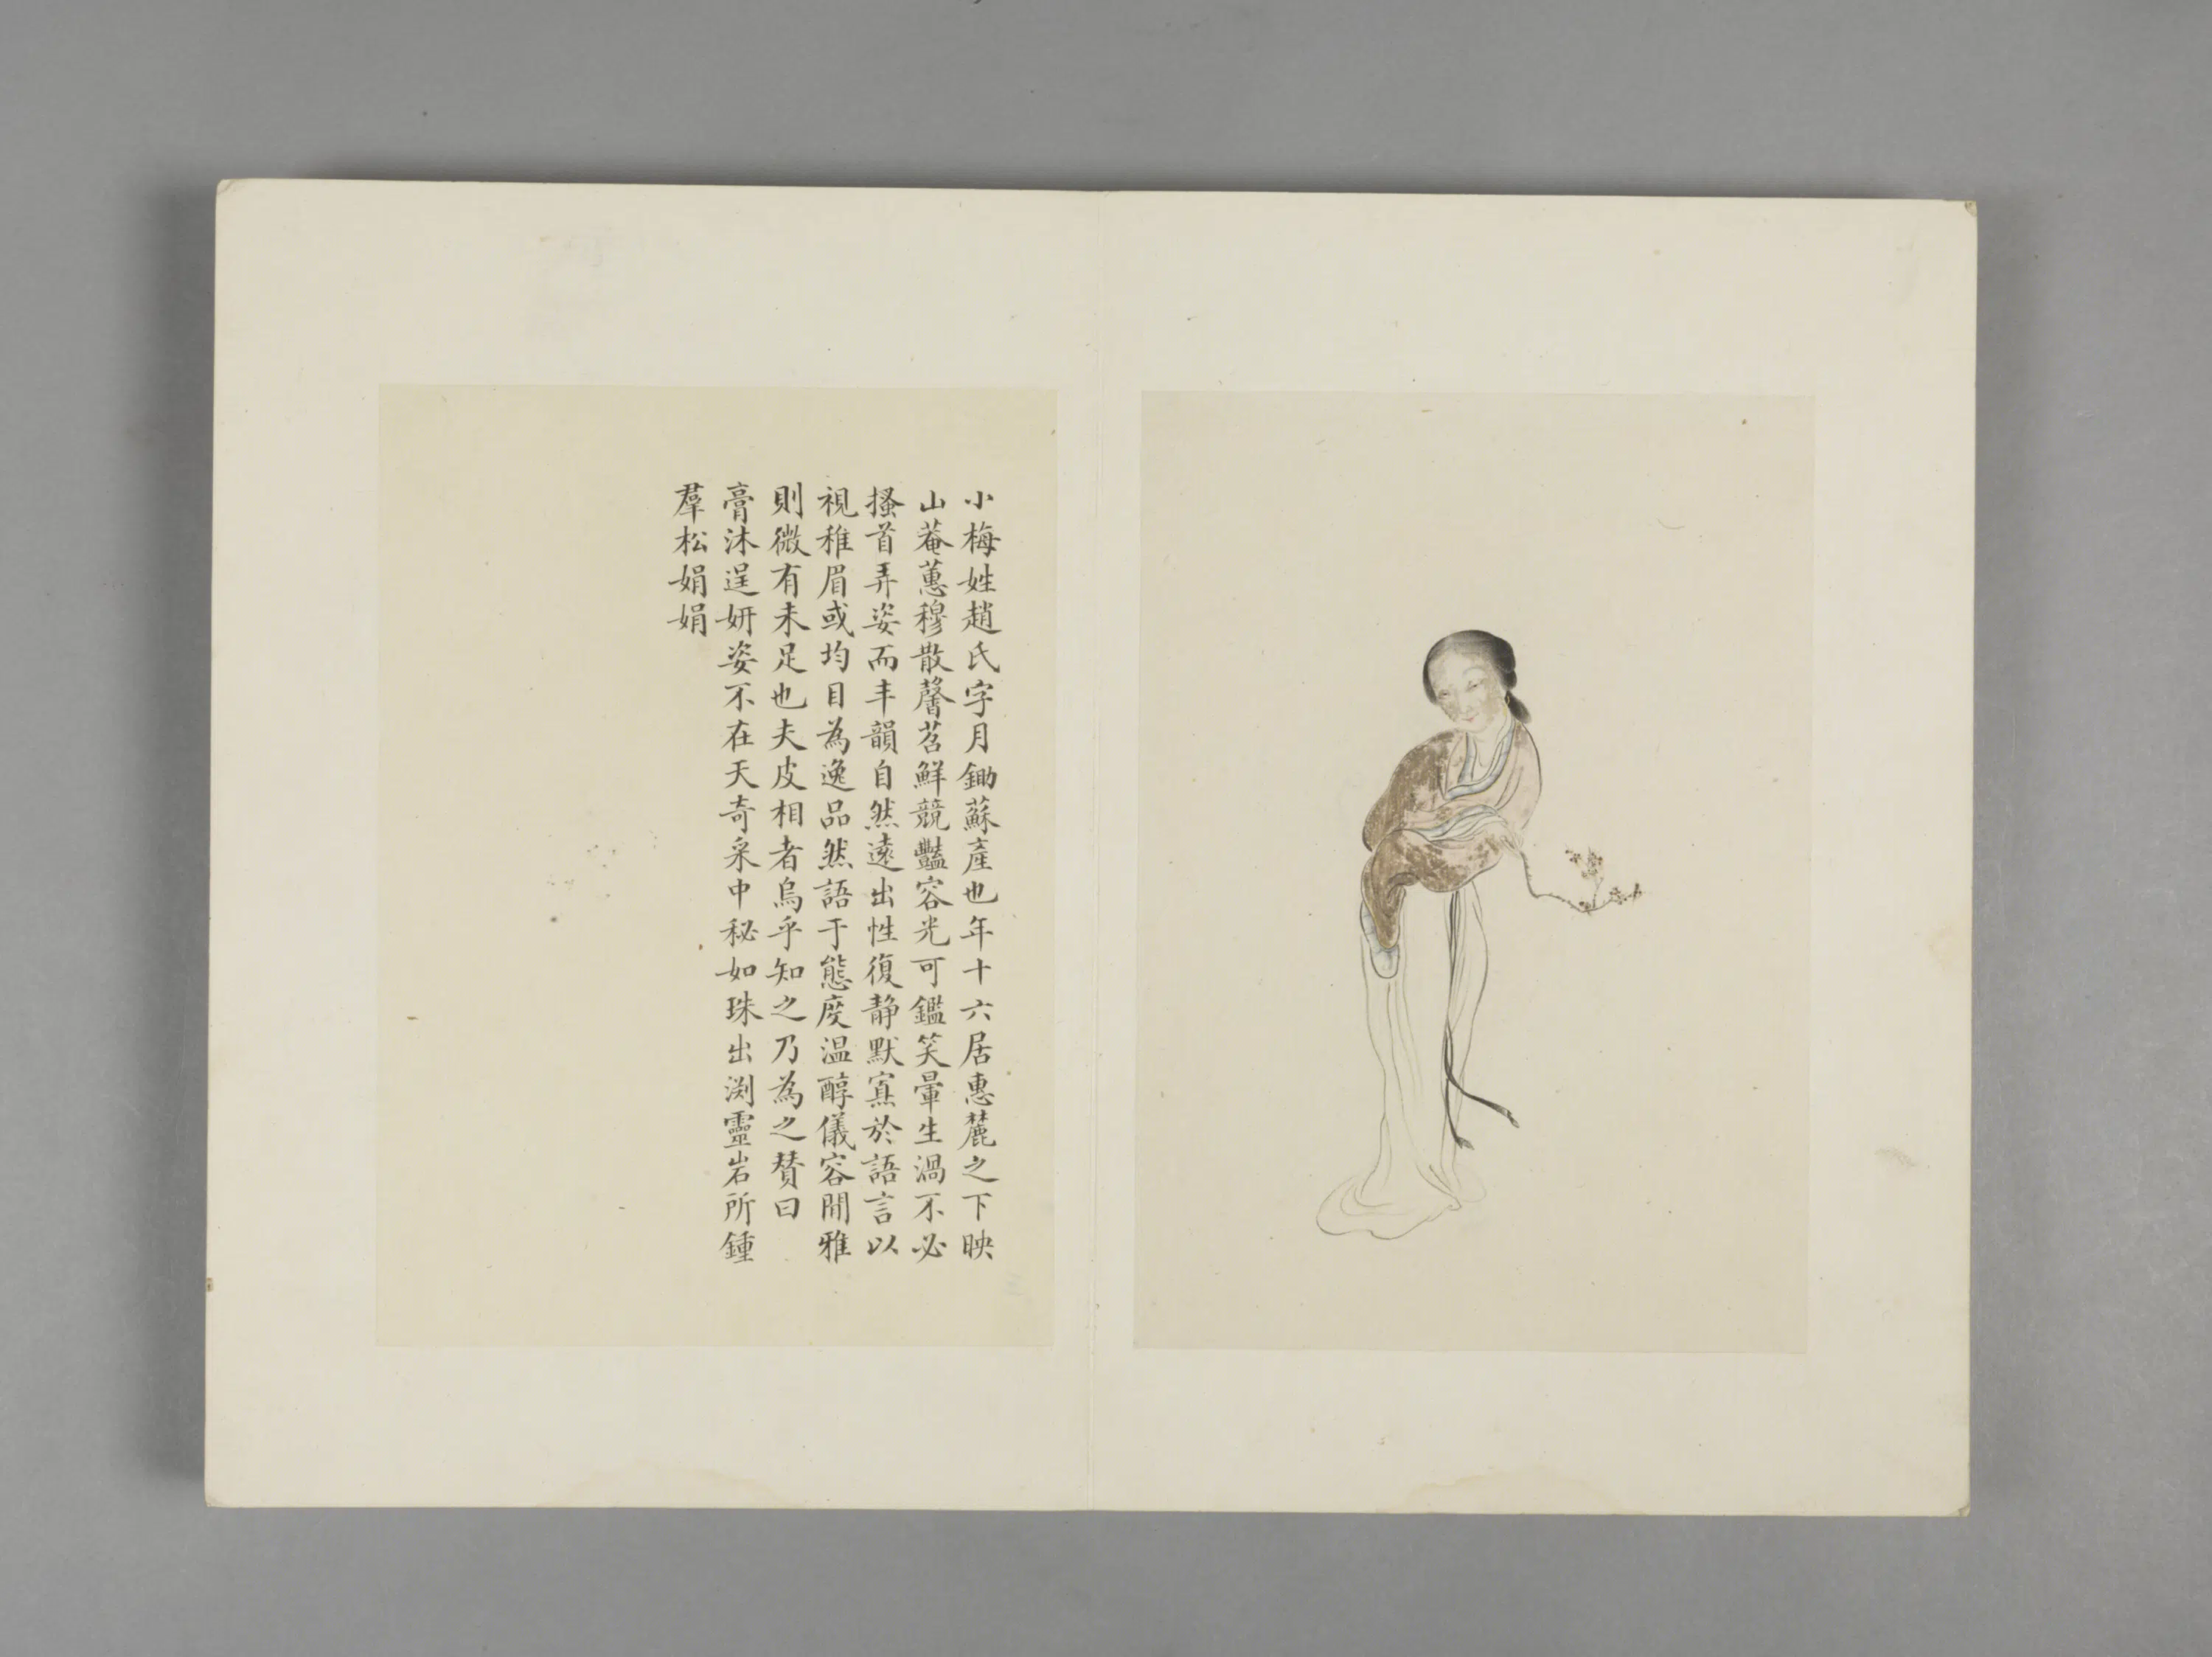 小梅姓趙氏字月鋤蘇產也年十六居惠麓之下映
山菴蕙穆散馨苕鮮競豔容光可鑑笑暈生渦不必
搔首弄姿而丰韻自然遠出性復静默寡於語言以
視稚眉或均目為逸品然語于態度温醇儀容閒雅
則微有未足也夫皮相者烏乎知之乃為之贊曰
膏沐逞妍姿不在天奇采中秘如珠出渕靈岩所鍾
羣松娟娟